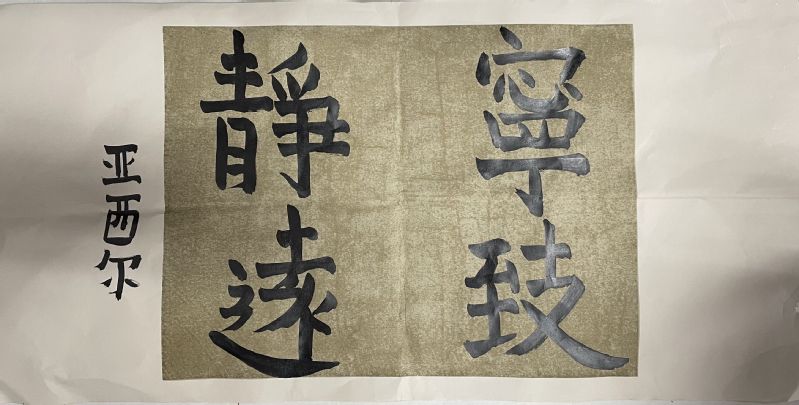 寧致
靜遠
亚西尔